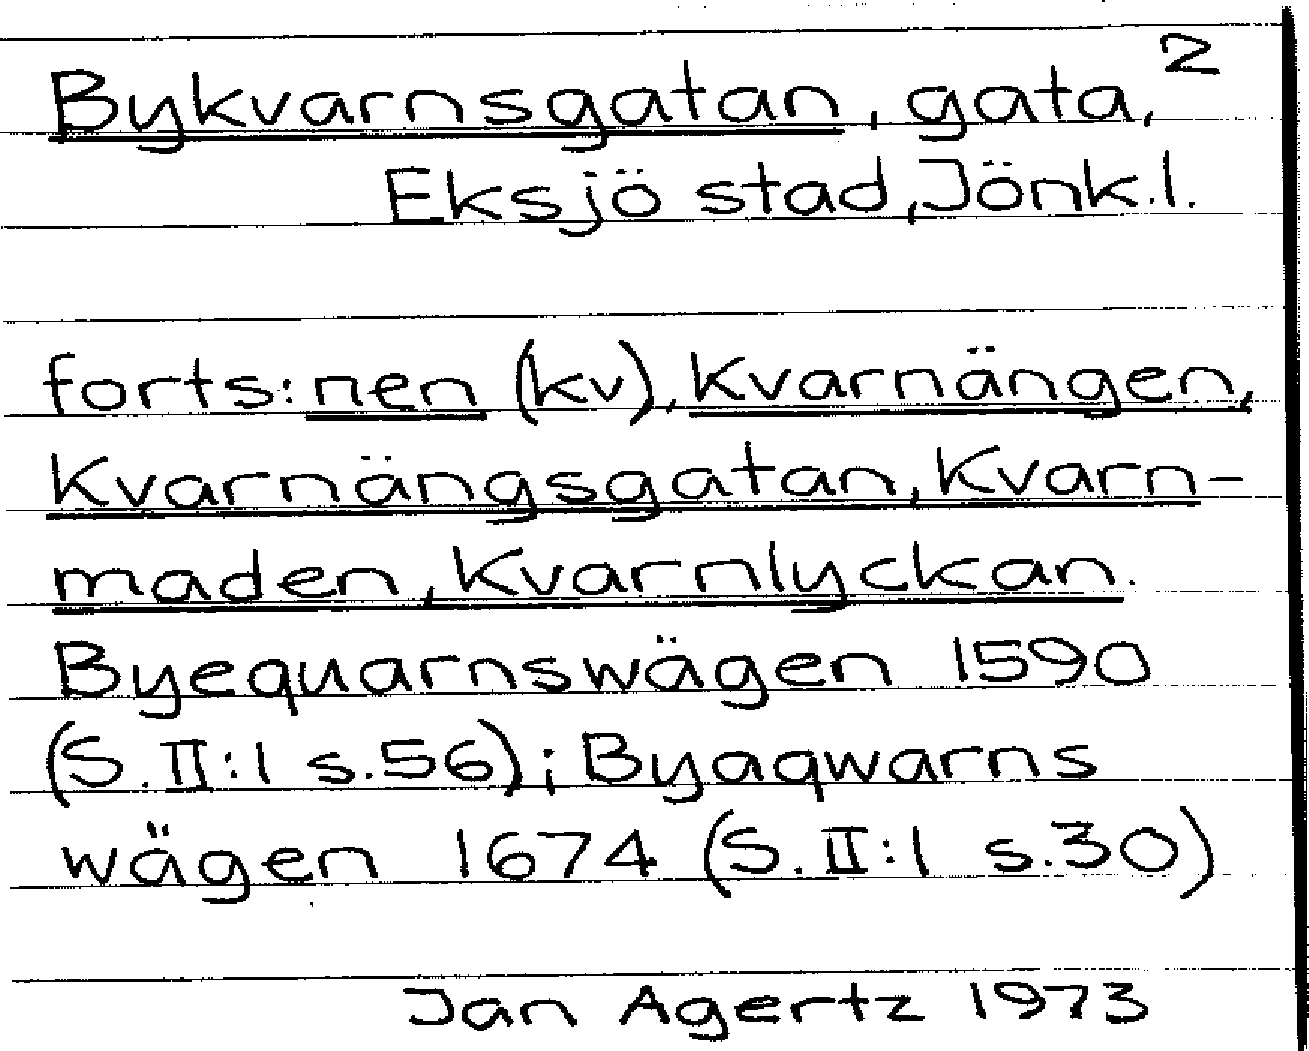 Bykvarnsgatan, gata, 2
Eksjö stad, Jönk.l.
forts: nen (kv), Kvarnängen,
Kvarnängsgatan, Kvarn-
maden, Kvarnlyckan.
Byequarnswägen 1590
(S. II:1 s.56); Byaqwarns
wägen 1674 (S. II:1 s.30)
Jan Agertz 1973